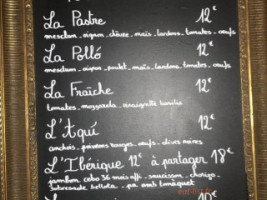 La Pastre 12€
mesclun - oignon - chèvre - maïs - lardons - tomates - oeufs
La Polló 12€
mesclun - oignon - poulet - maïs - lardons - tomates - oeufs
La Fraîche 12€
tomates - mozzarella - vinaigrette
L'Aqui 12€
anchois - poivrons rouges - oeufs - olives noires
L'Ibérique 12€ à partager 18€
jambon cebo 36 mois aff - saucisson - chorizo -